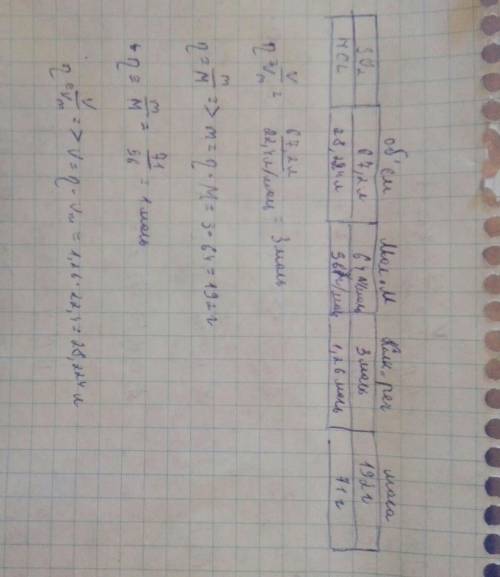 об'єм Мол.М Кільк.реч маса
SO₂ 67,2л 64г/моль 3 моль 192г
HCl 28,224л 36г/моль 1,26 моль 71г
η = V/Vm = 67,2л/22,4л/моль = 3 моль
η = m/M => m = η · M = 3 · 64 = 192 г
η = m/M = 71/56 = 1 моль
η = V/Vm => V = η · Vm = 1,26 · 22,4 = 28,224 л